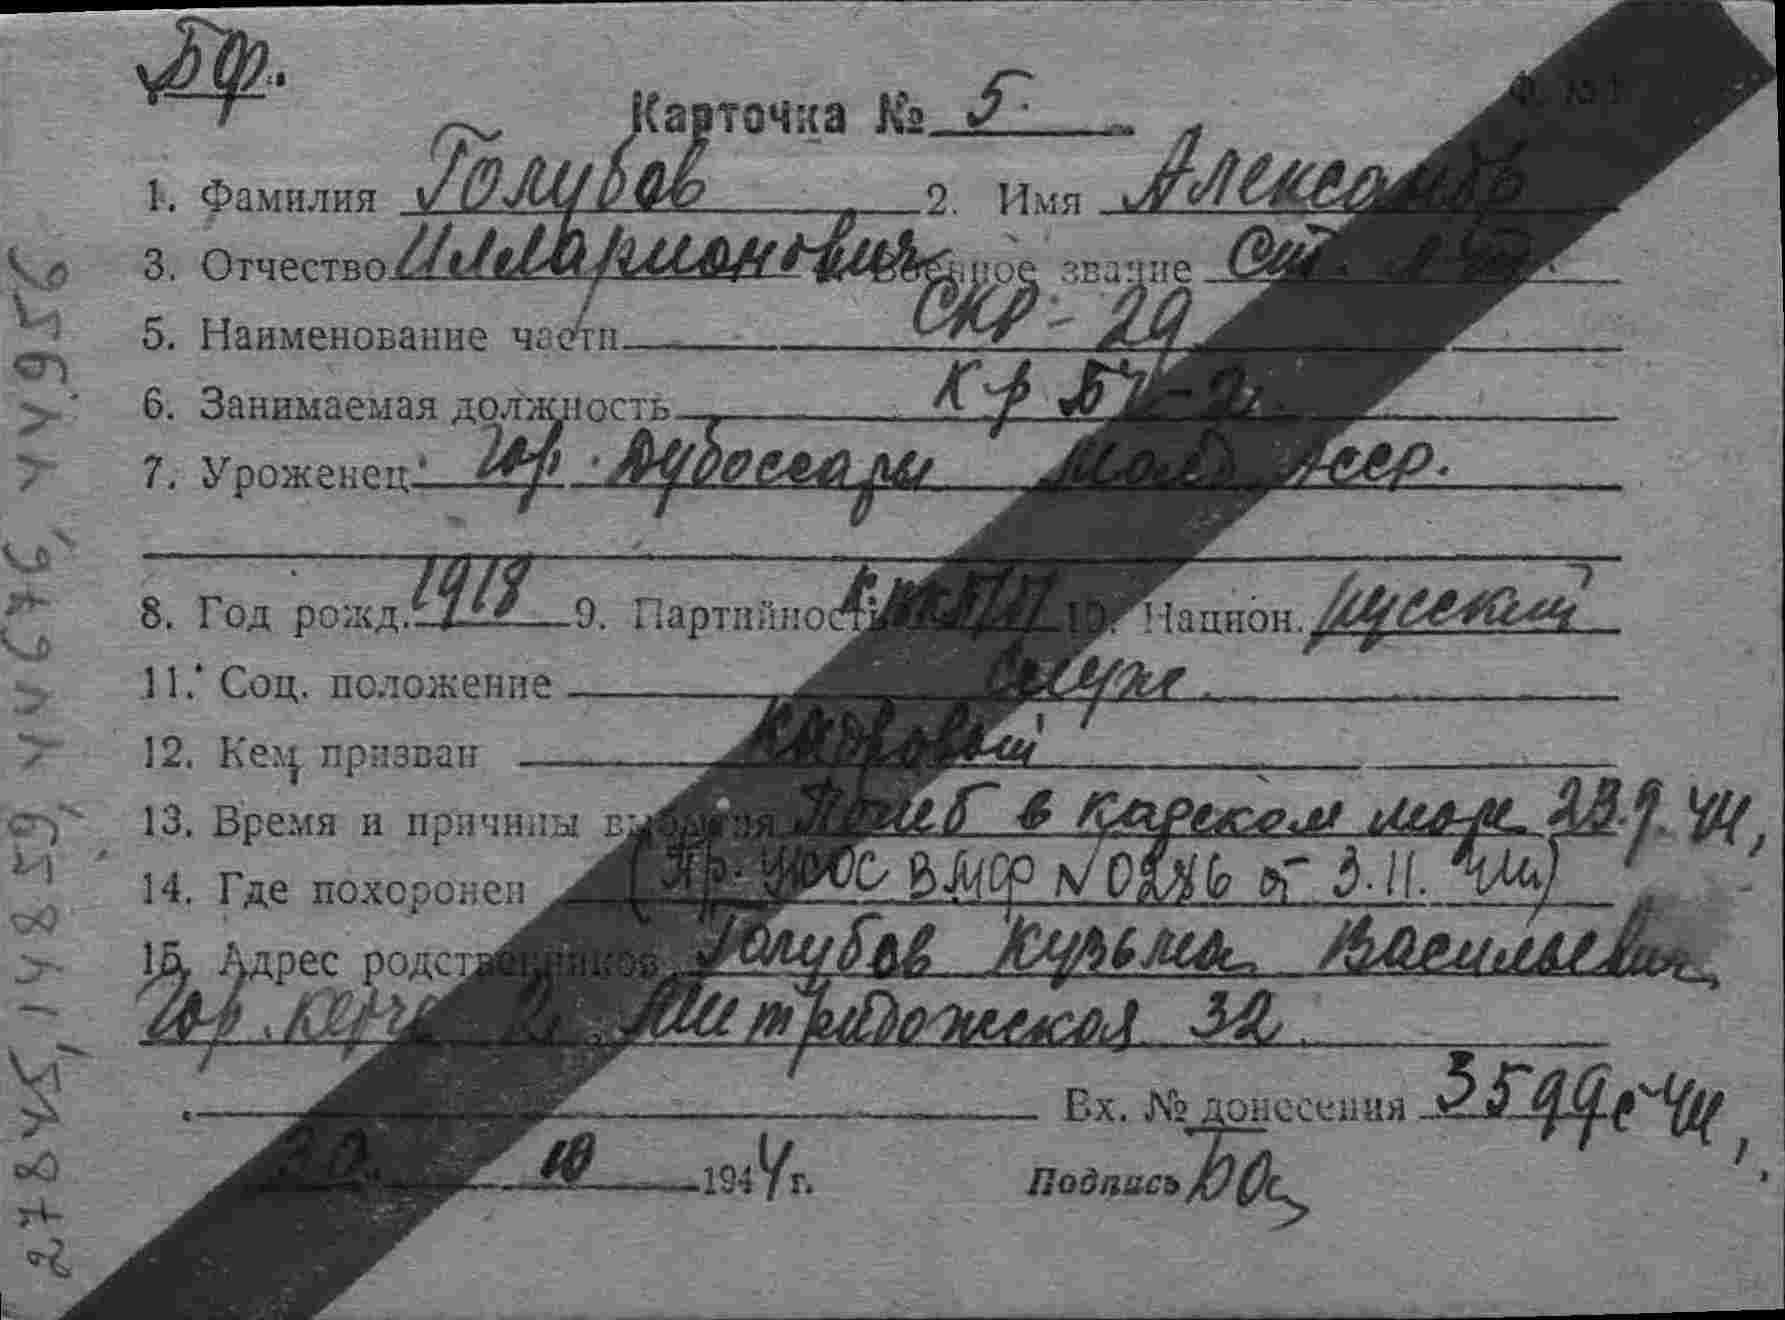 БФ.
Карточка № 5.
1. Фамилия Голубов 2. Имя Александр
3. Отчество Илларионович Военное звание Ст. л-т.
5. Наименование части СКР-29
6. Занимаемая должность К-р БЧ-2
7. Уроженец Гор. Дубоссары Молд АССР.
8. Год рожд. 1918 9. Партийность К. ВКП/б/ 10. Национ. русский
11. Соц. положение служ.
12. Кем призван кадровый
13. Время и причины выбытия Погиб в Карском море 23.9.44,
14. Где похоронен (Пр. УКОС ВМФ № 0286 от 3.11.44)
15. Адрес родственников Голубов Кузьма Васильевич
Гор. Керчь 2, Митридожеская 32
Вх. № донесения 3599с 44,
30 10 1944 г. Подпись
27845, 14859, 44676, 44956